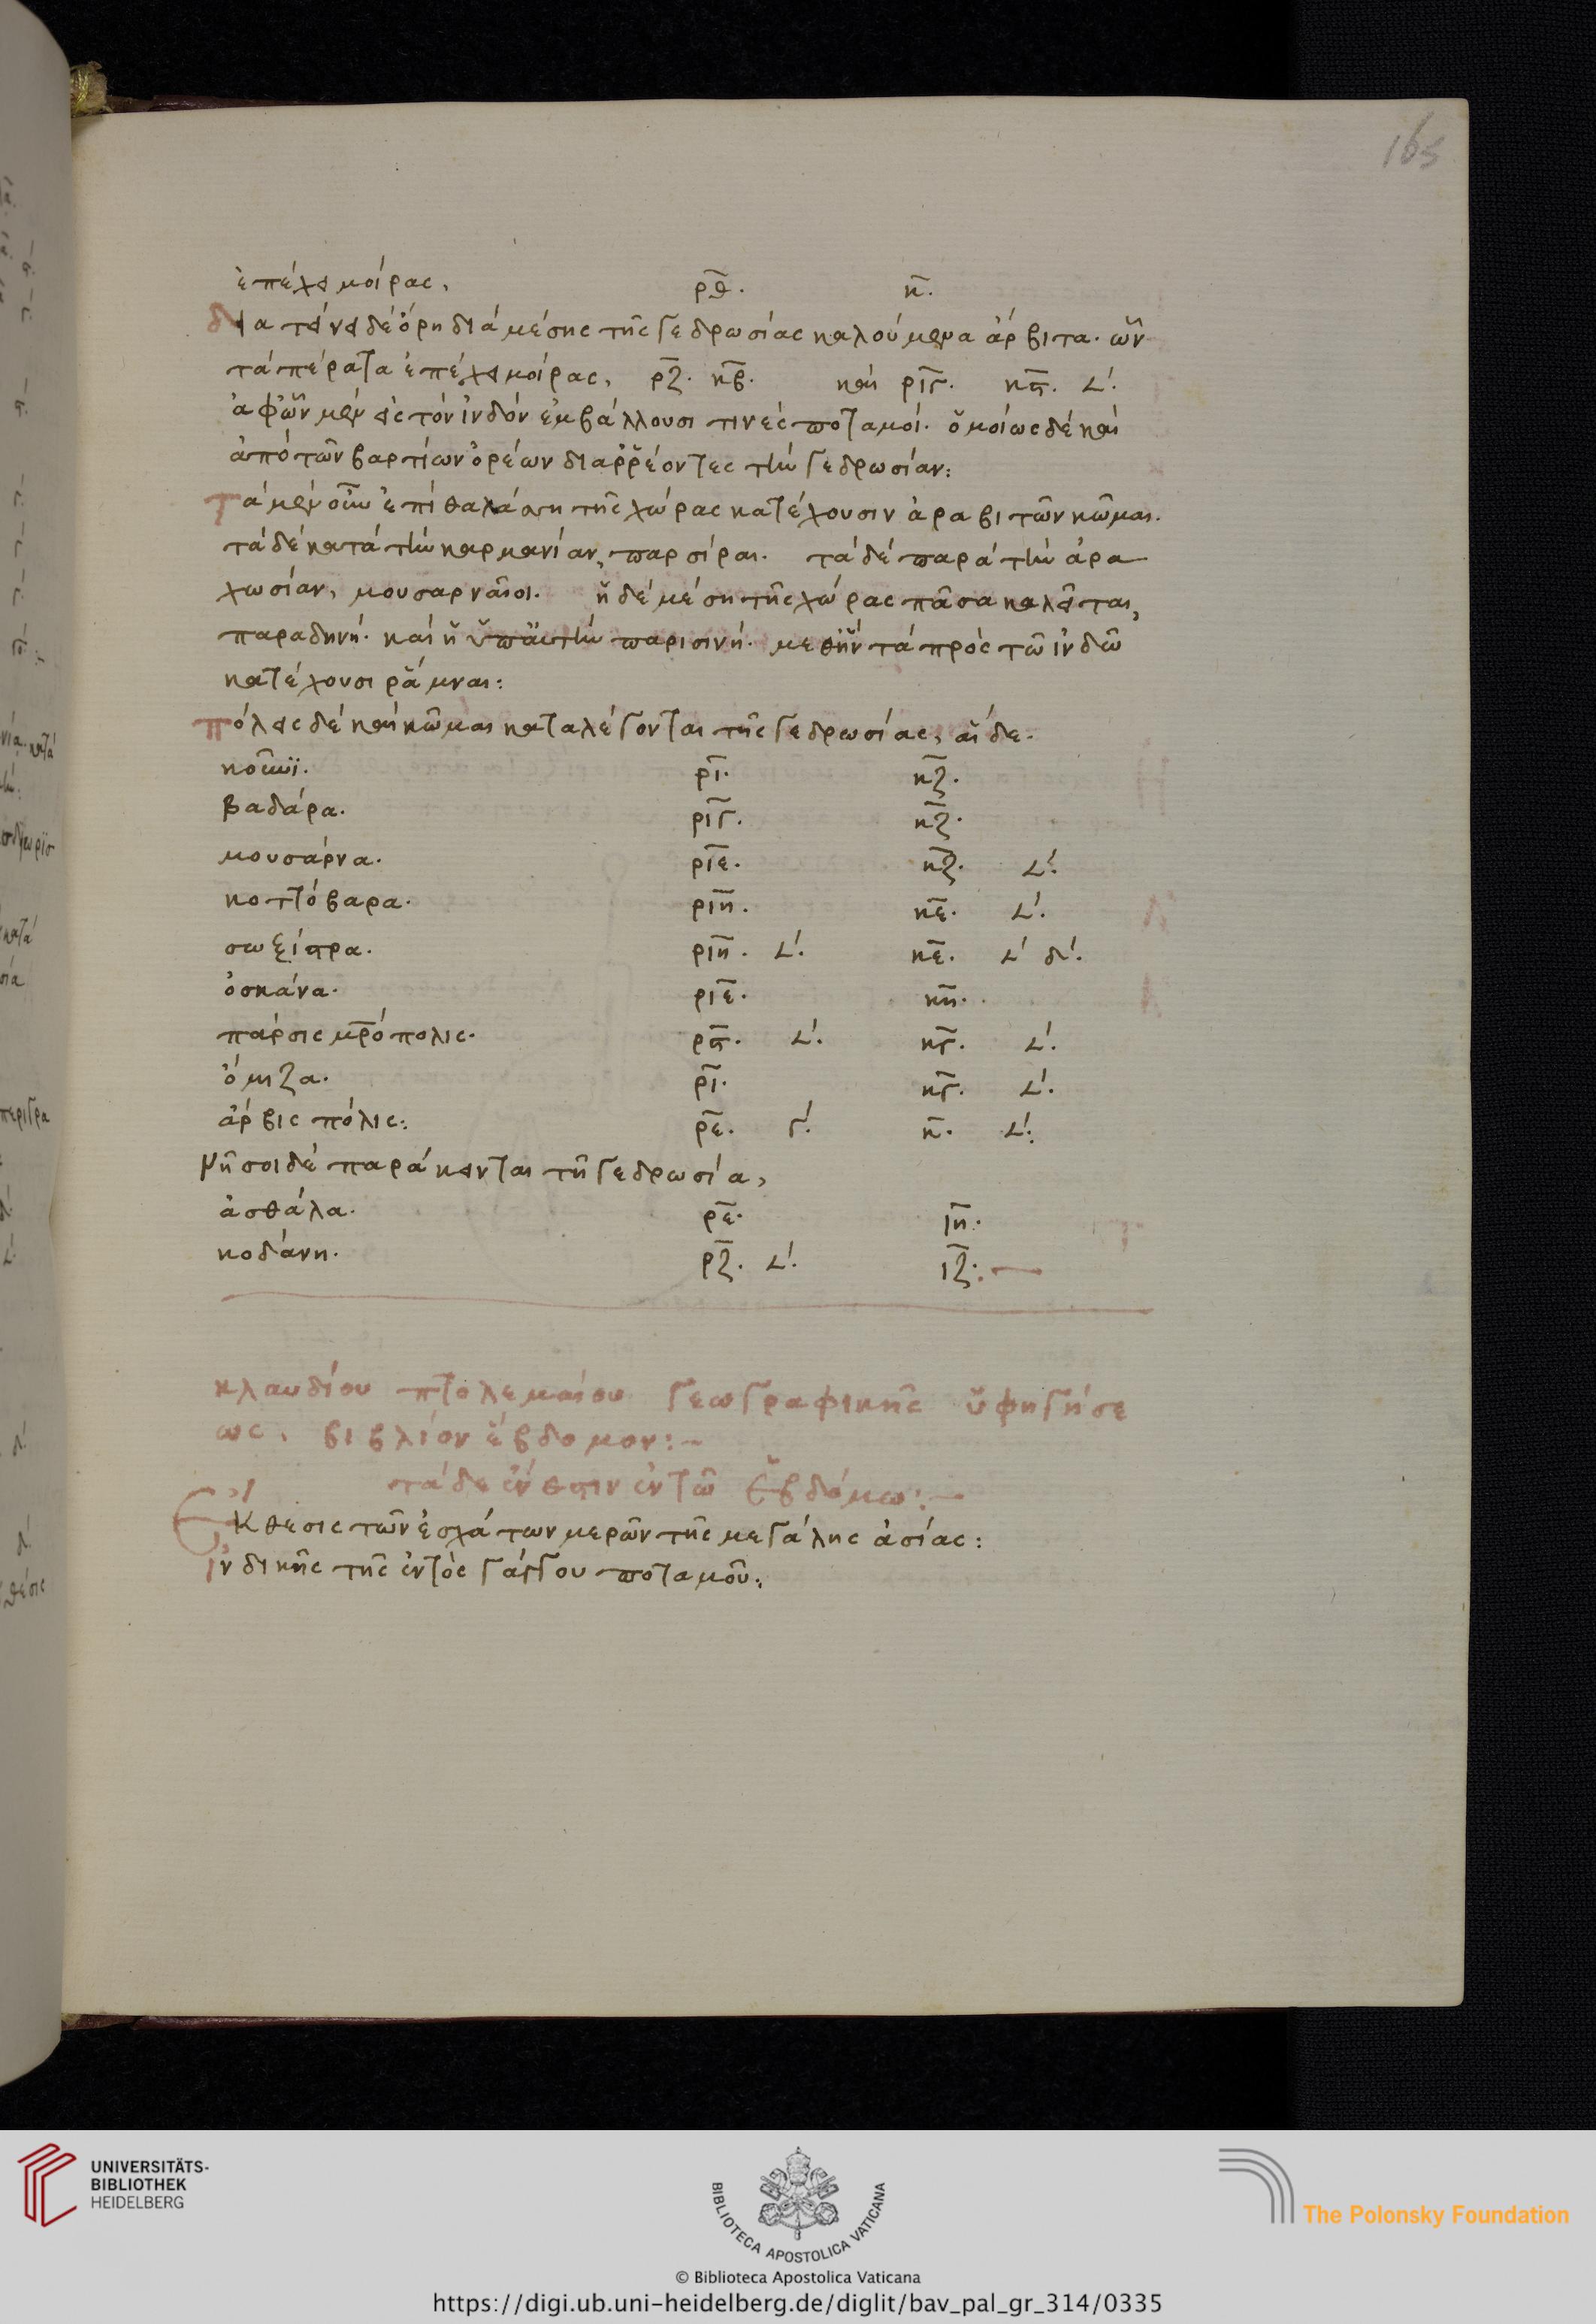 165
ἐπέχει μοίρας, ρθ. κ.
διατείνει δὲ ὄρη διὰ μέσης τῆς γεδρωσίας καλούμενα ἄρβιτα. ὧν
τὰ πέρατα ἐπέχει μοίρας, ρζ. κβ. καὶ ριγ. κϛ. 𐅵.
ἀφ ὧν μὲν εἰς τὸν ἰνδὸν ἐμβάλλουσι τινὲς ποταμοί. ὁμοίως δὲ καὶ
ἀπὸ τῶν βαρτίων ὀρέων διαῤῥέοντες τὴν γεδρωσίαν:
τὰ μὲν οὖν ἐπὶ θαλάσση τῆς χώρας κατέχουσιν ἀραβιτῶν κῶμαι.
τὰ δὲ κατὰ τὴν καρμανίαν, παρσίραι. τὰ δὲ παρὰ τὴν ἀρα
χωσίαν, μουσαρναῖοι. ἡ δὲ μέση τῆς χώρας πᾶσα καλεῖται,
παραδηνή. καὶ ἡ ὑπ αὐτὴν παρισινή. μεθ ἣν τὰ πρὸς τῶ ἰνδῶ
κατέχουσι ῥάμναι:
πόλεις δὲ καὶ κῶμαι καταλέγονται τῆς γεδρωσίας, αἵδε.
κοῦνϊ. ρι. κζ.
βαδάρα. ριγ. κζ.
μουσάρνα. ριε. κζ. 𐅵.
κοττόβαρα. ριη. κε. 𐅵.
σωξίστρα. ριη. 𐅵. κε. 𐅵 δ.
ὀσκάνα. ριε. κη.
πάρσις μρόπολις. ρϛ. 𐅵. κγ. 𐅵.
ὄμιζα. ρι. κγ. 𐅵.
ἄρβις πόλις: ρε. γ. κ. 𐅵:
Νῆσοι δὲ παράκεινται τῆ γεδρωσία,
ἀσθάλα. ρε. ιη.
κοδάνη. ρζ. 𐅵. ιζ:
κλαυδίου πτολεμαίου γεωγραφικῆς ὑφηγήσε
ως. βιβλίον ἕβδομον:
τάδε ἔνεστιν ἐν τῶ ἑβδόμω:
Ἔκθεσις τῶν ἐσχάτων μερῶν τῆς μεγάλης ἀσίας:
ἰνδικῆς τῆς ἐντὸς γάγγου ποταμοῦ:
UNIVERSITÄTS-
BIBLIOTHEK
HEIDELBERG
BIBLIOTECA APOSTOLICA VATICANA
The Polonsky Foundation
© Biblioteca Apostolica Vaticana
https://digi.ub.uni-heidelberg.de/diglit/bav_pal_gr_314/0335